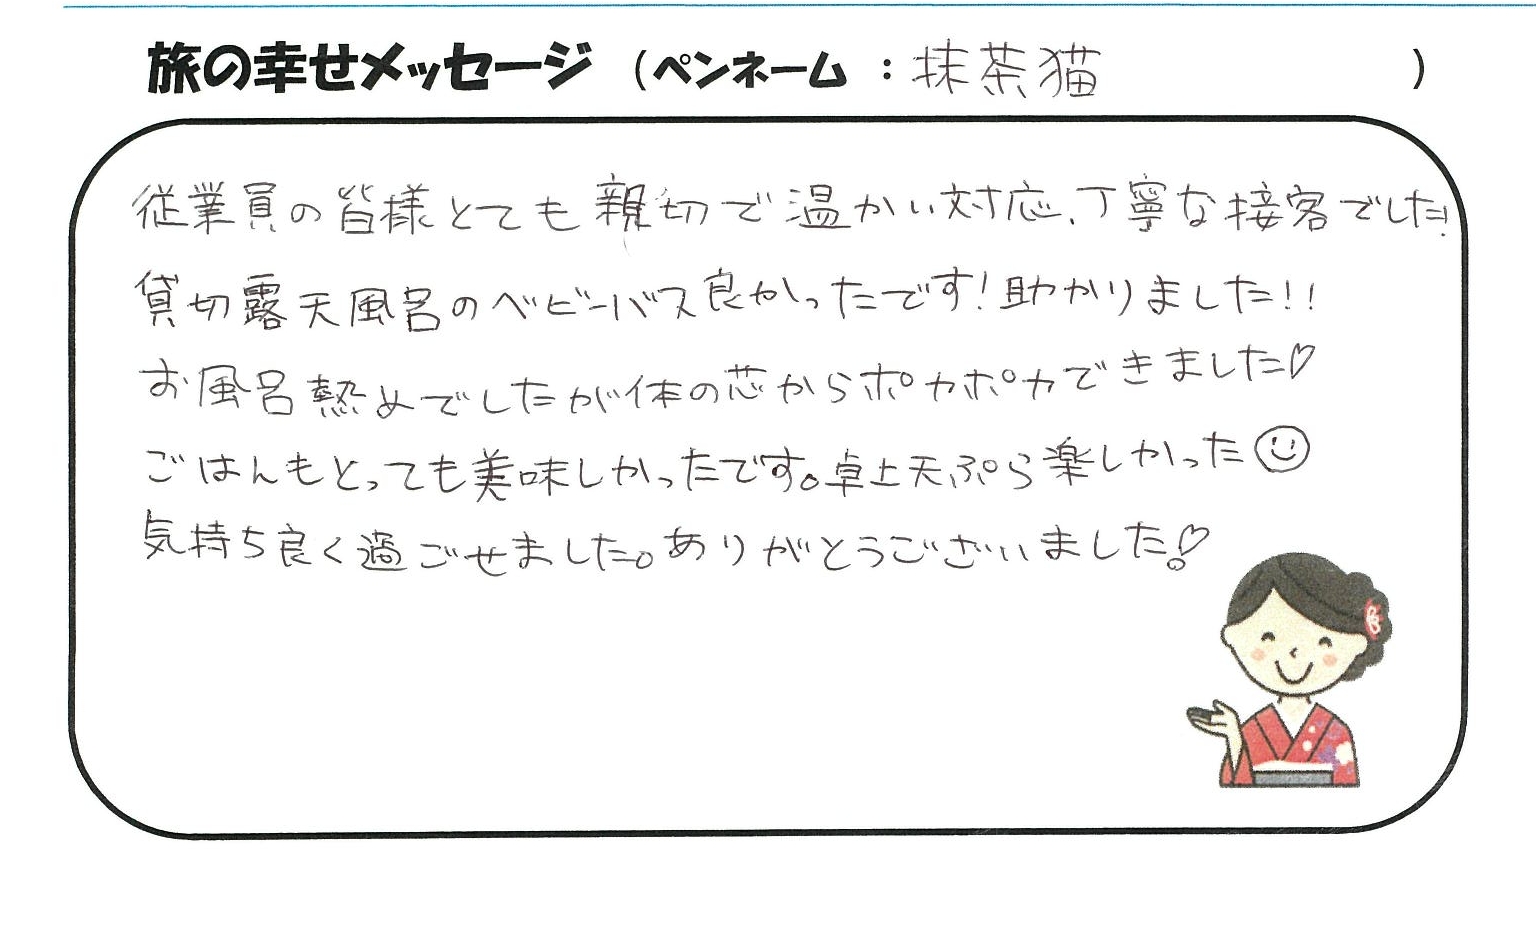 旅の幸せメッセージ (ペンネーム : 抹茶猫 )
従業員の皆様とても親切で温かい対応、丁寧な接客でした!
貸切露天風呂のベビーバス良かったです!助かりました!!
お風呂熱めでしたが体の芯からポカポカできました♡
ごはんもとっても美味しかったです。卓上天ぷら楽しかった☺
気持ち良く過ごせました。ありがとうございました!♡